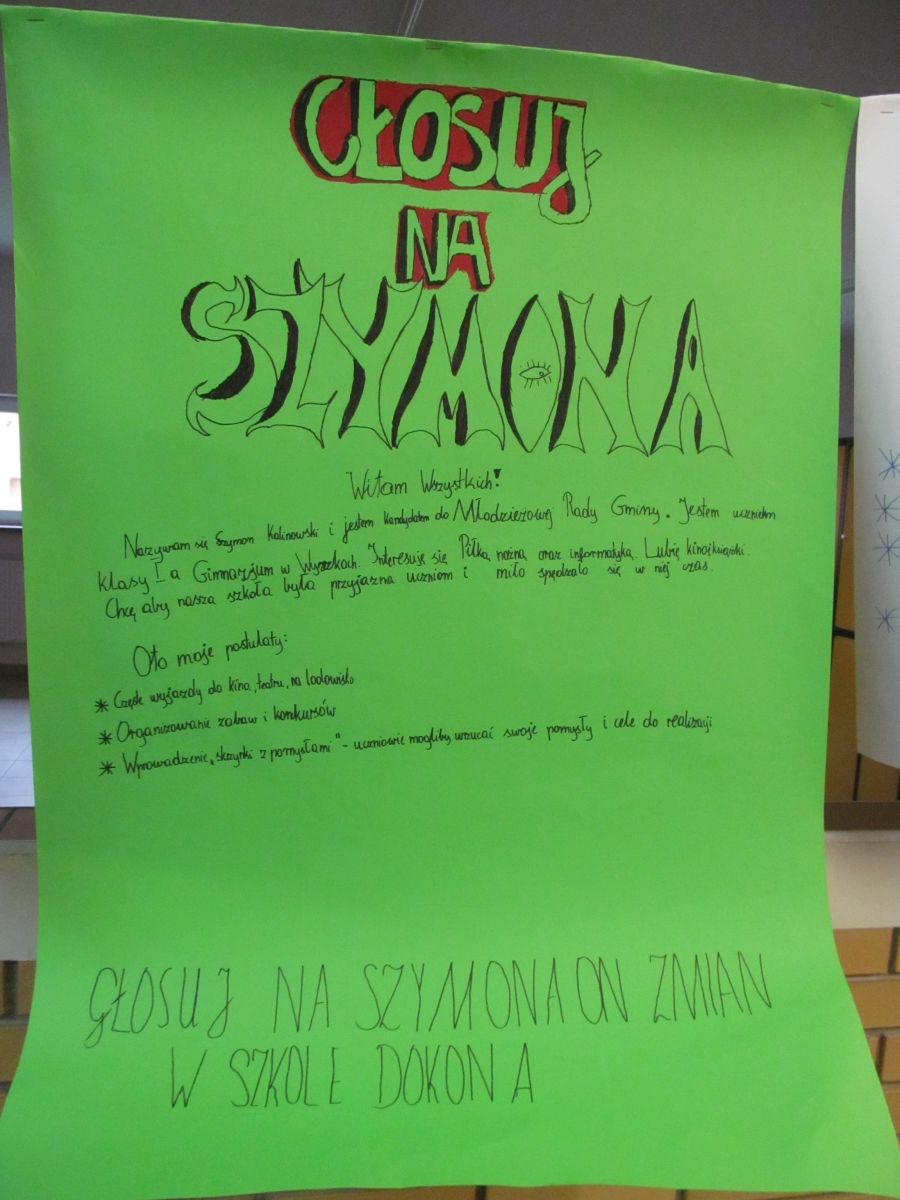 GŁOSUJ
NA
SZYMONA
Witam Wszystkich!
Nazywam się Szymon Kalinowski i jestem kandydatem do Młodzieżowej Rady Gminy. Jestem uczniem
klasy I a Gimnazjum w Wyszkach. Interesuję się Piłką nożną oraz informatyką. Lubię kino i książki.
Chcę aby nasza szkoła była przyjazna uczniom i miło spędzało się w niej czas.
Oto moje postulaty:
* Częste wyjazdy do kina, teatru, na lodowisko
* Organizowanie zabaw i konkursów
* Wprowadzenie „skrzynki z pomysłami" - uczniowie mogliby wrzucać swoje pomysły i cele do realizacji
GŁOSUJ NA SZYMONA ON ZMIAN
W SZKOLE DOKONA